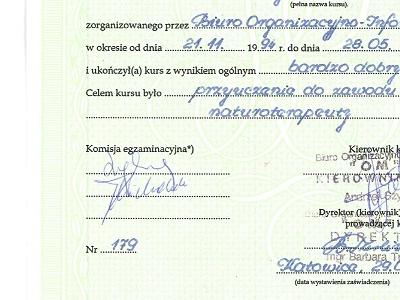 (pełna nazwa kursu).
zorganizowanego przez Biuro Organizacyjno-Info
w okresie od dnia 21.11. 1994 r. do dnia 28.05.
i ukończył(a) kurs z wynikiem ogólnym bardzo dobry
Celem kursu było przyuczenia do zawodu
naturoterapeuty
Komisja egzaminacyjna*)
Kierownik k
Biuro Organizacyj
"OM"
KIEROWNI
Andrzej Szy
Dyrektor (kierownik)
prowadzącej k
DYREKT
mgr Barbara T
Nr 179
Katowice, 29.0
(data wystawienia zaświadczenia)